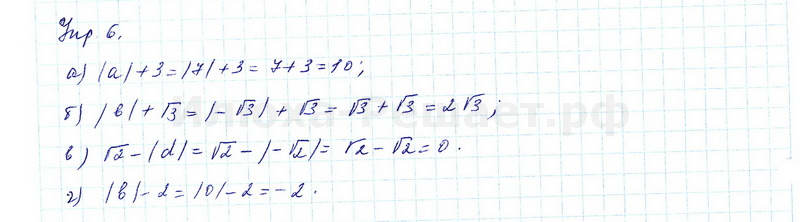 Упр 6.
а) |a|+3=|7|+3=7+3=10;
б) |в|+√3=|-√3|+√3=√3+√3=2√3;
в) √2-|d|=√2-|-√2|=√2-√2=0.
г) |в|-2=|0|-2=-2.